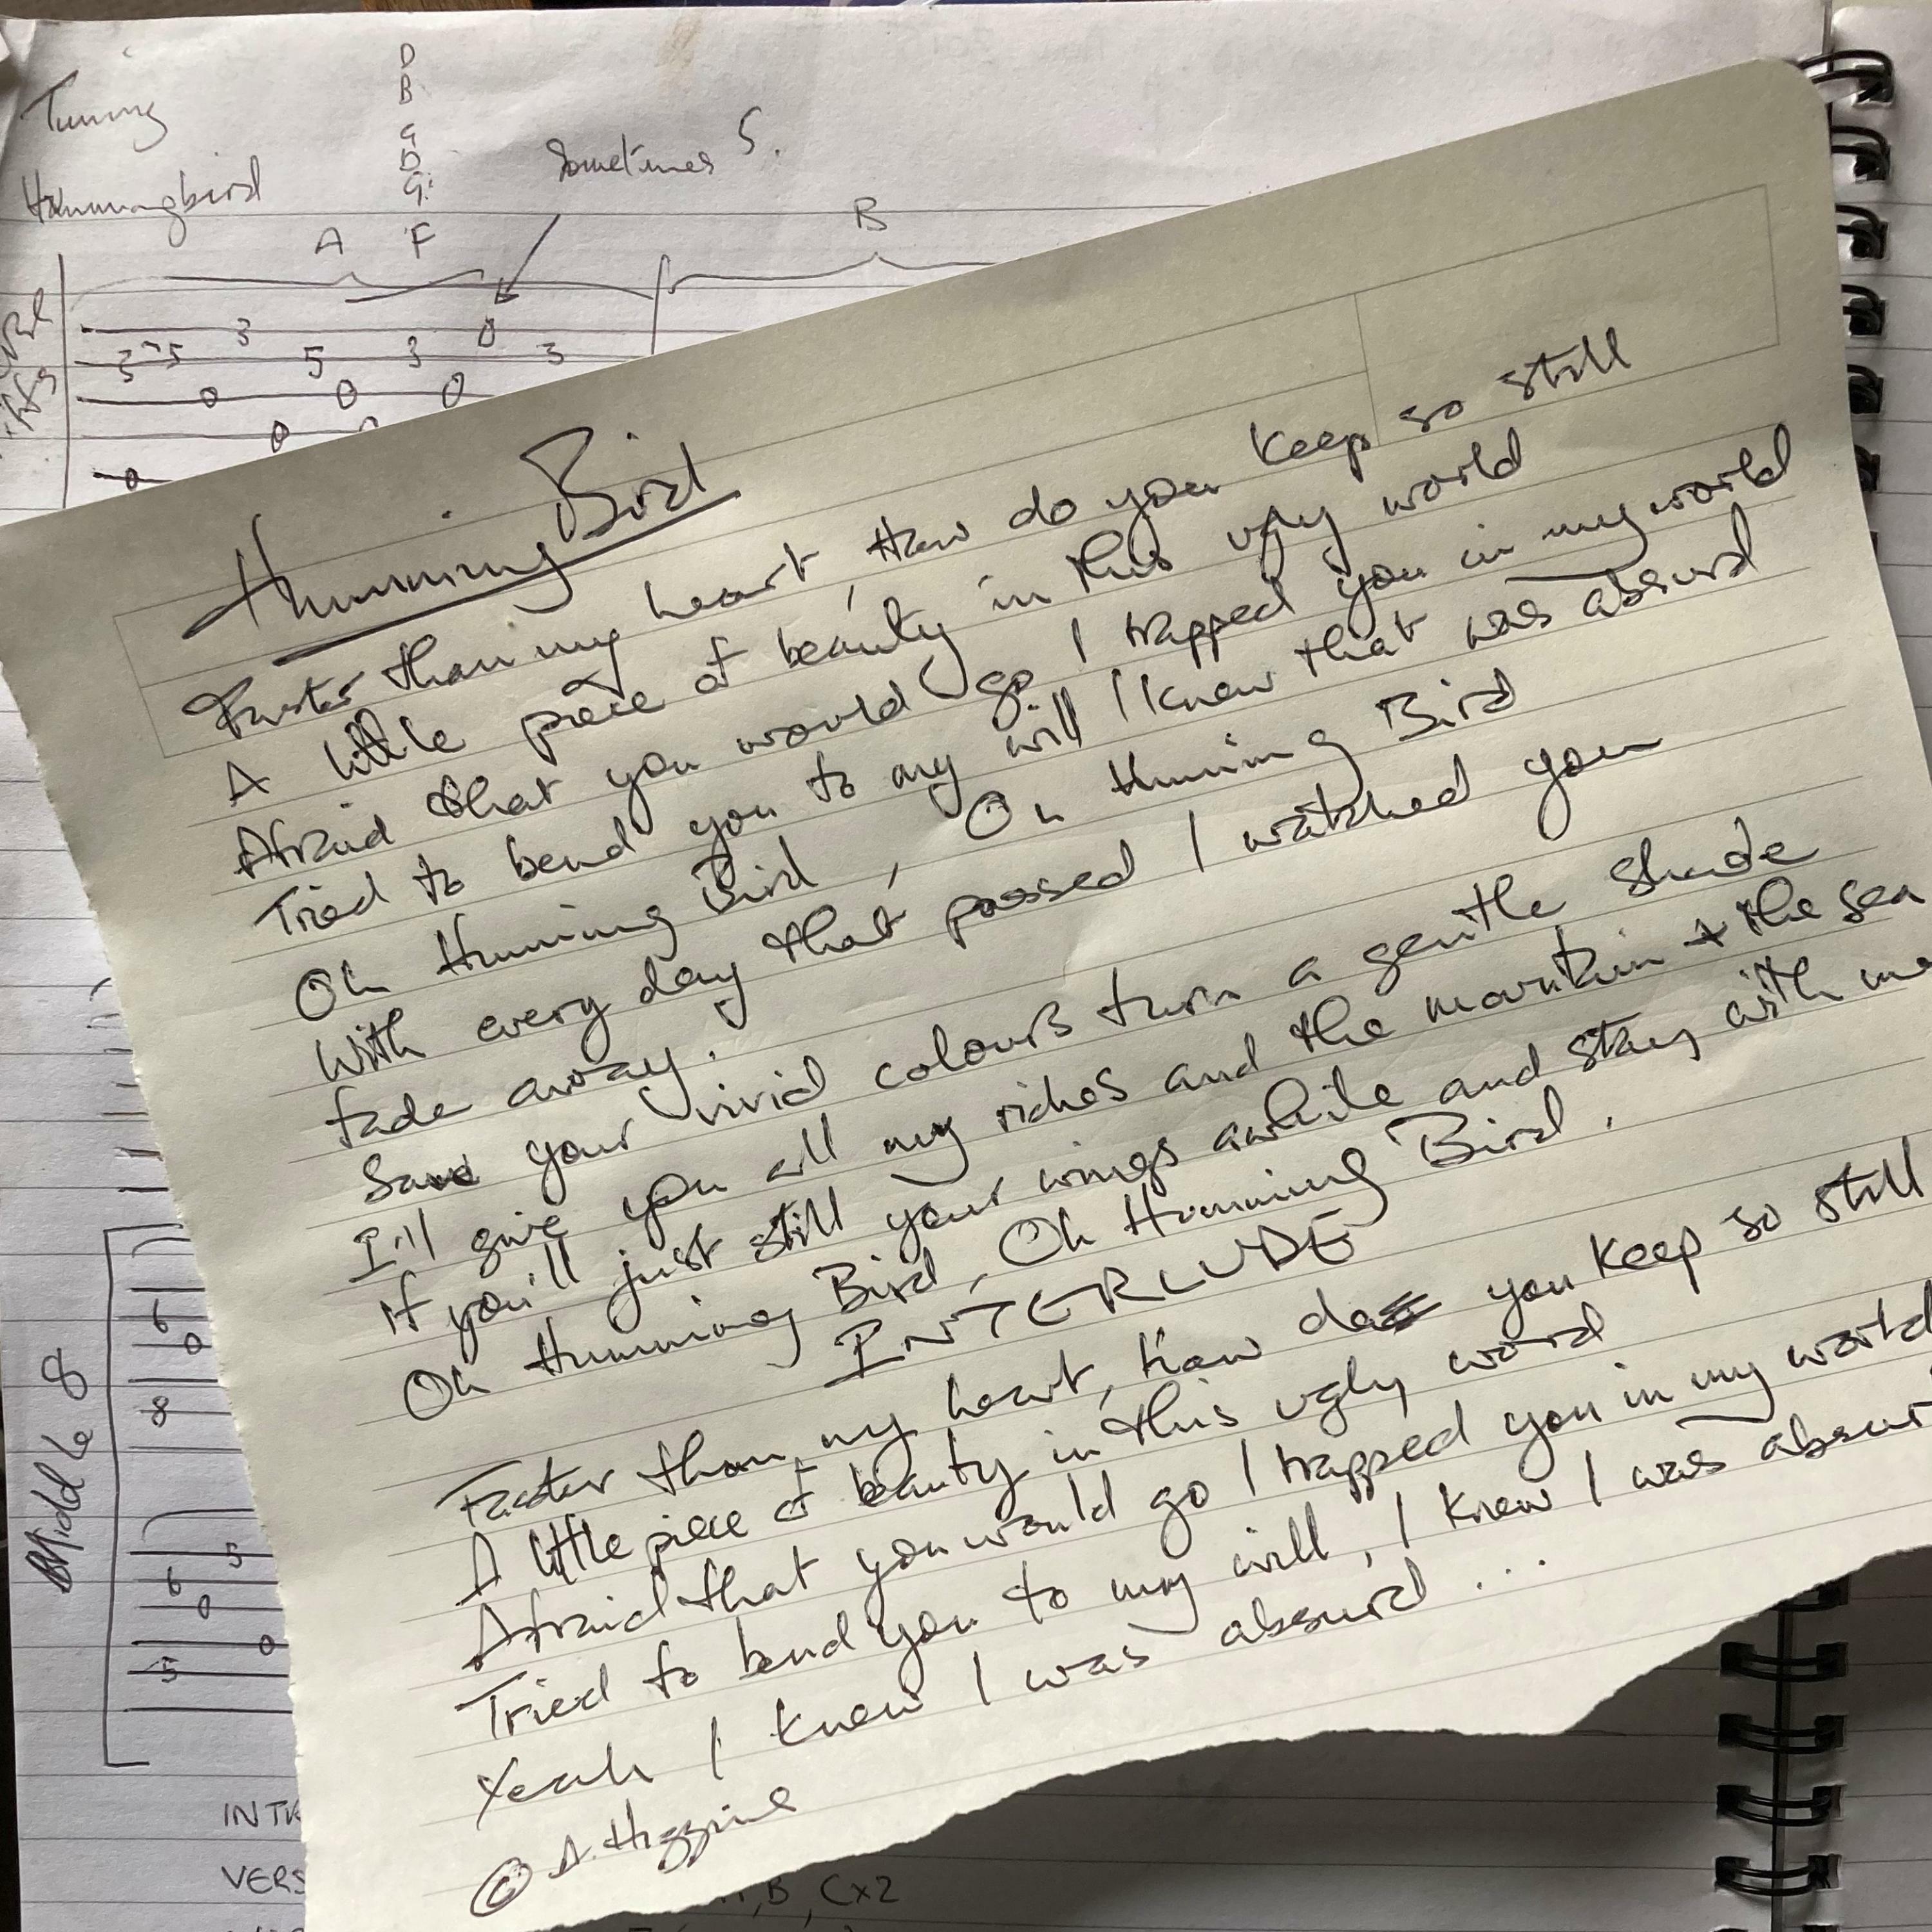 Tuning
D
B
G
D
G
F
Hummingbird
Sometimes 5.
A
B
3 5 3 5 3 0 3
0 0 0
0
0
Humming Bird
Faster than my heart, How do you keep so still
A little piece of beauty in this ugly world
Afraid that you would go I trapped you in my world
Tried to bend you to my will I knew that was absurd
Oh Humming Bird, Oh Huming Bird
With every day that passed I watched you
fade away.
Saw your vivid colours turn a gentle shade
I'll give you all my riches and the mountain + the sea
If you'll just still your wings awhile and stay with me
Oh Humming Bird, Oh Humming Bird.
INTERLUDE
Faster than my heart, How do you keep so still
A little piece of beauty in this ugly world
Afraid that you would go I trapped you in my world
Tried to bend you to my will, I knew I was absur
Yeah I knew I was absurd ...
© A. Higgins
Middle 8
6
0
8
5
6
0
0
5
INTR
VERS
B, Cx2